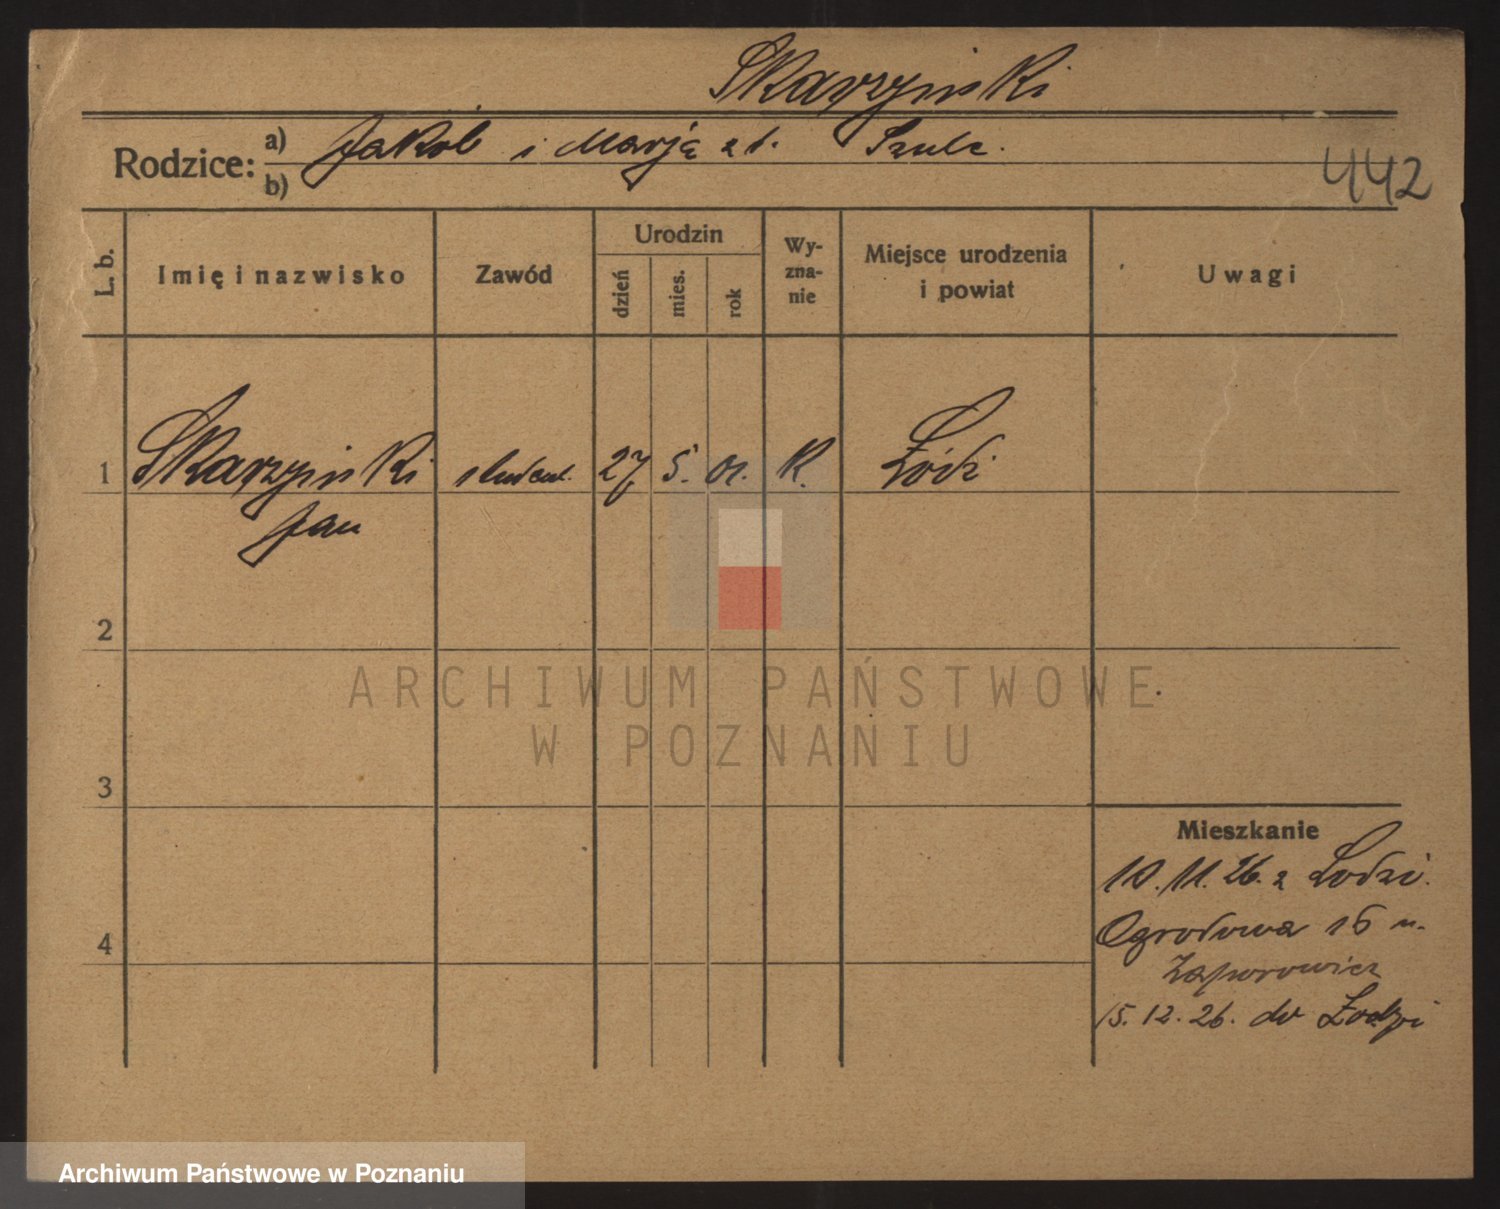 Skarzyński
Rodzice: a) Jakób i Marja z d. Szulc.
b)
442
L. b.
Imię i nazwisko
Zawód
Urodzin
dzień
mies.
rok
Wy-
zna-
nie
Miejsce urodzenia
i powiat
Uwagi
1 Skarzyński student. 27 5. 01. K. Łódź
Jan
2
ARCHIWUM PAŃSTWOWE
W POZNANIU
3
Mieszkanie
10. 11. 26. z Łodzi.
4 Ogrodowa 16 u.
15. 12. 26. do Łodzi
Archiwum Państwowe w Poznaniu